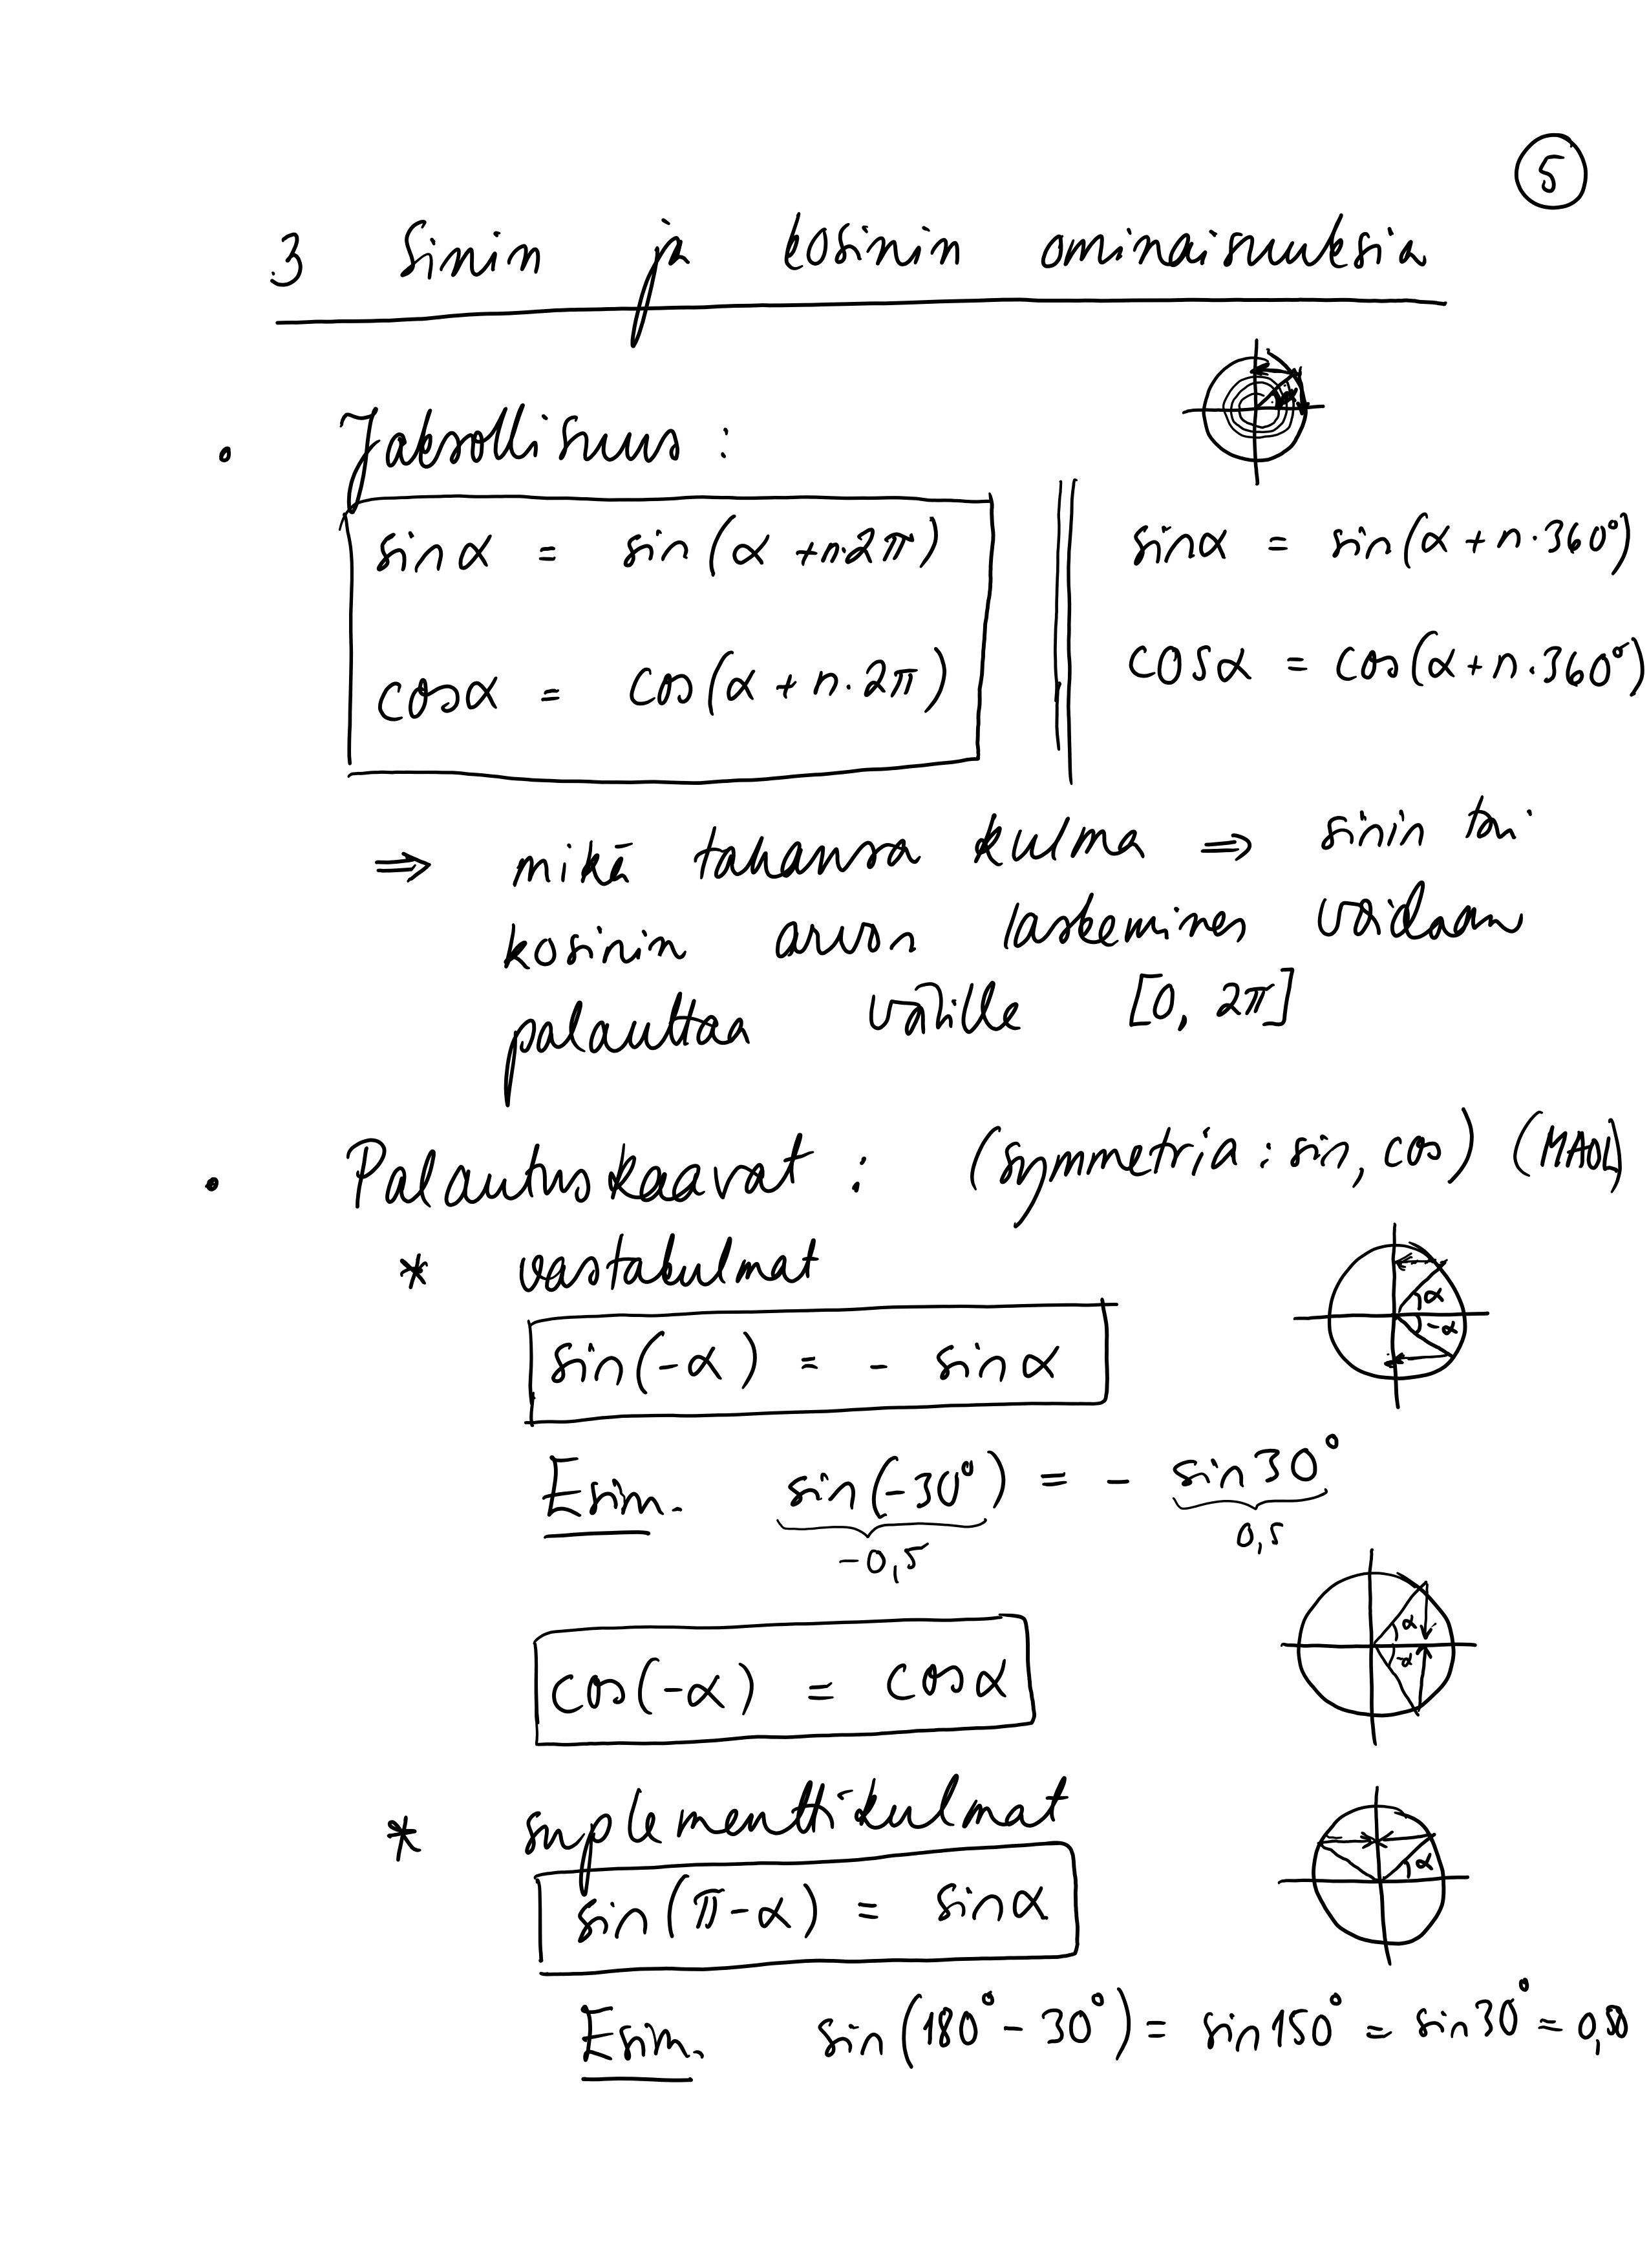 5
3 Sinin ja kosinin ominaisuuksia
• Jaksollisuus :
sin α = sin(α + n·2π)
sin α = sin(α + n·360°)
cos α = cos(α + n·2π)
cos α = cos(α + n·360°)
⇒ mikä tahansa kulma ⇒ sinin tai
kosinin arvon laskeminen voidaan
palauttaa välille [0, 2π]
• Palautuskaavat : (symmetria : sin, cos) (MAOL)
* vastakulmat
α
-α
sin(-α) = - sin α
Esim. sin(-30°) = - sin 30°
-0,5 0,5
α
-α
cos(-α) = cos α
* suplementtikulmat
α
sin(π-α) = sin α
Esim. sin(180° - 30°) = sin 150° = sin 30° = 0,50